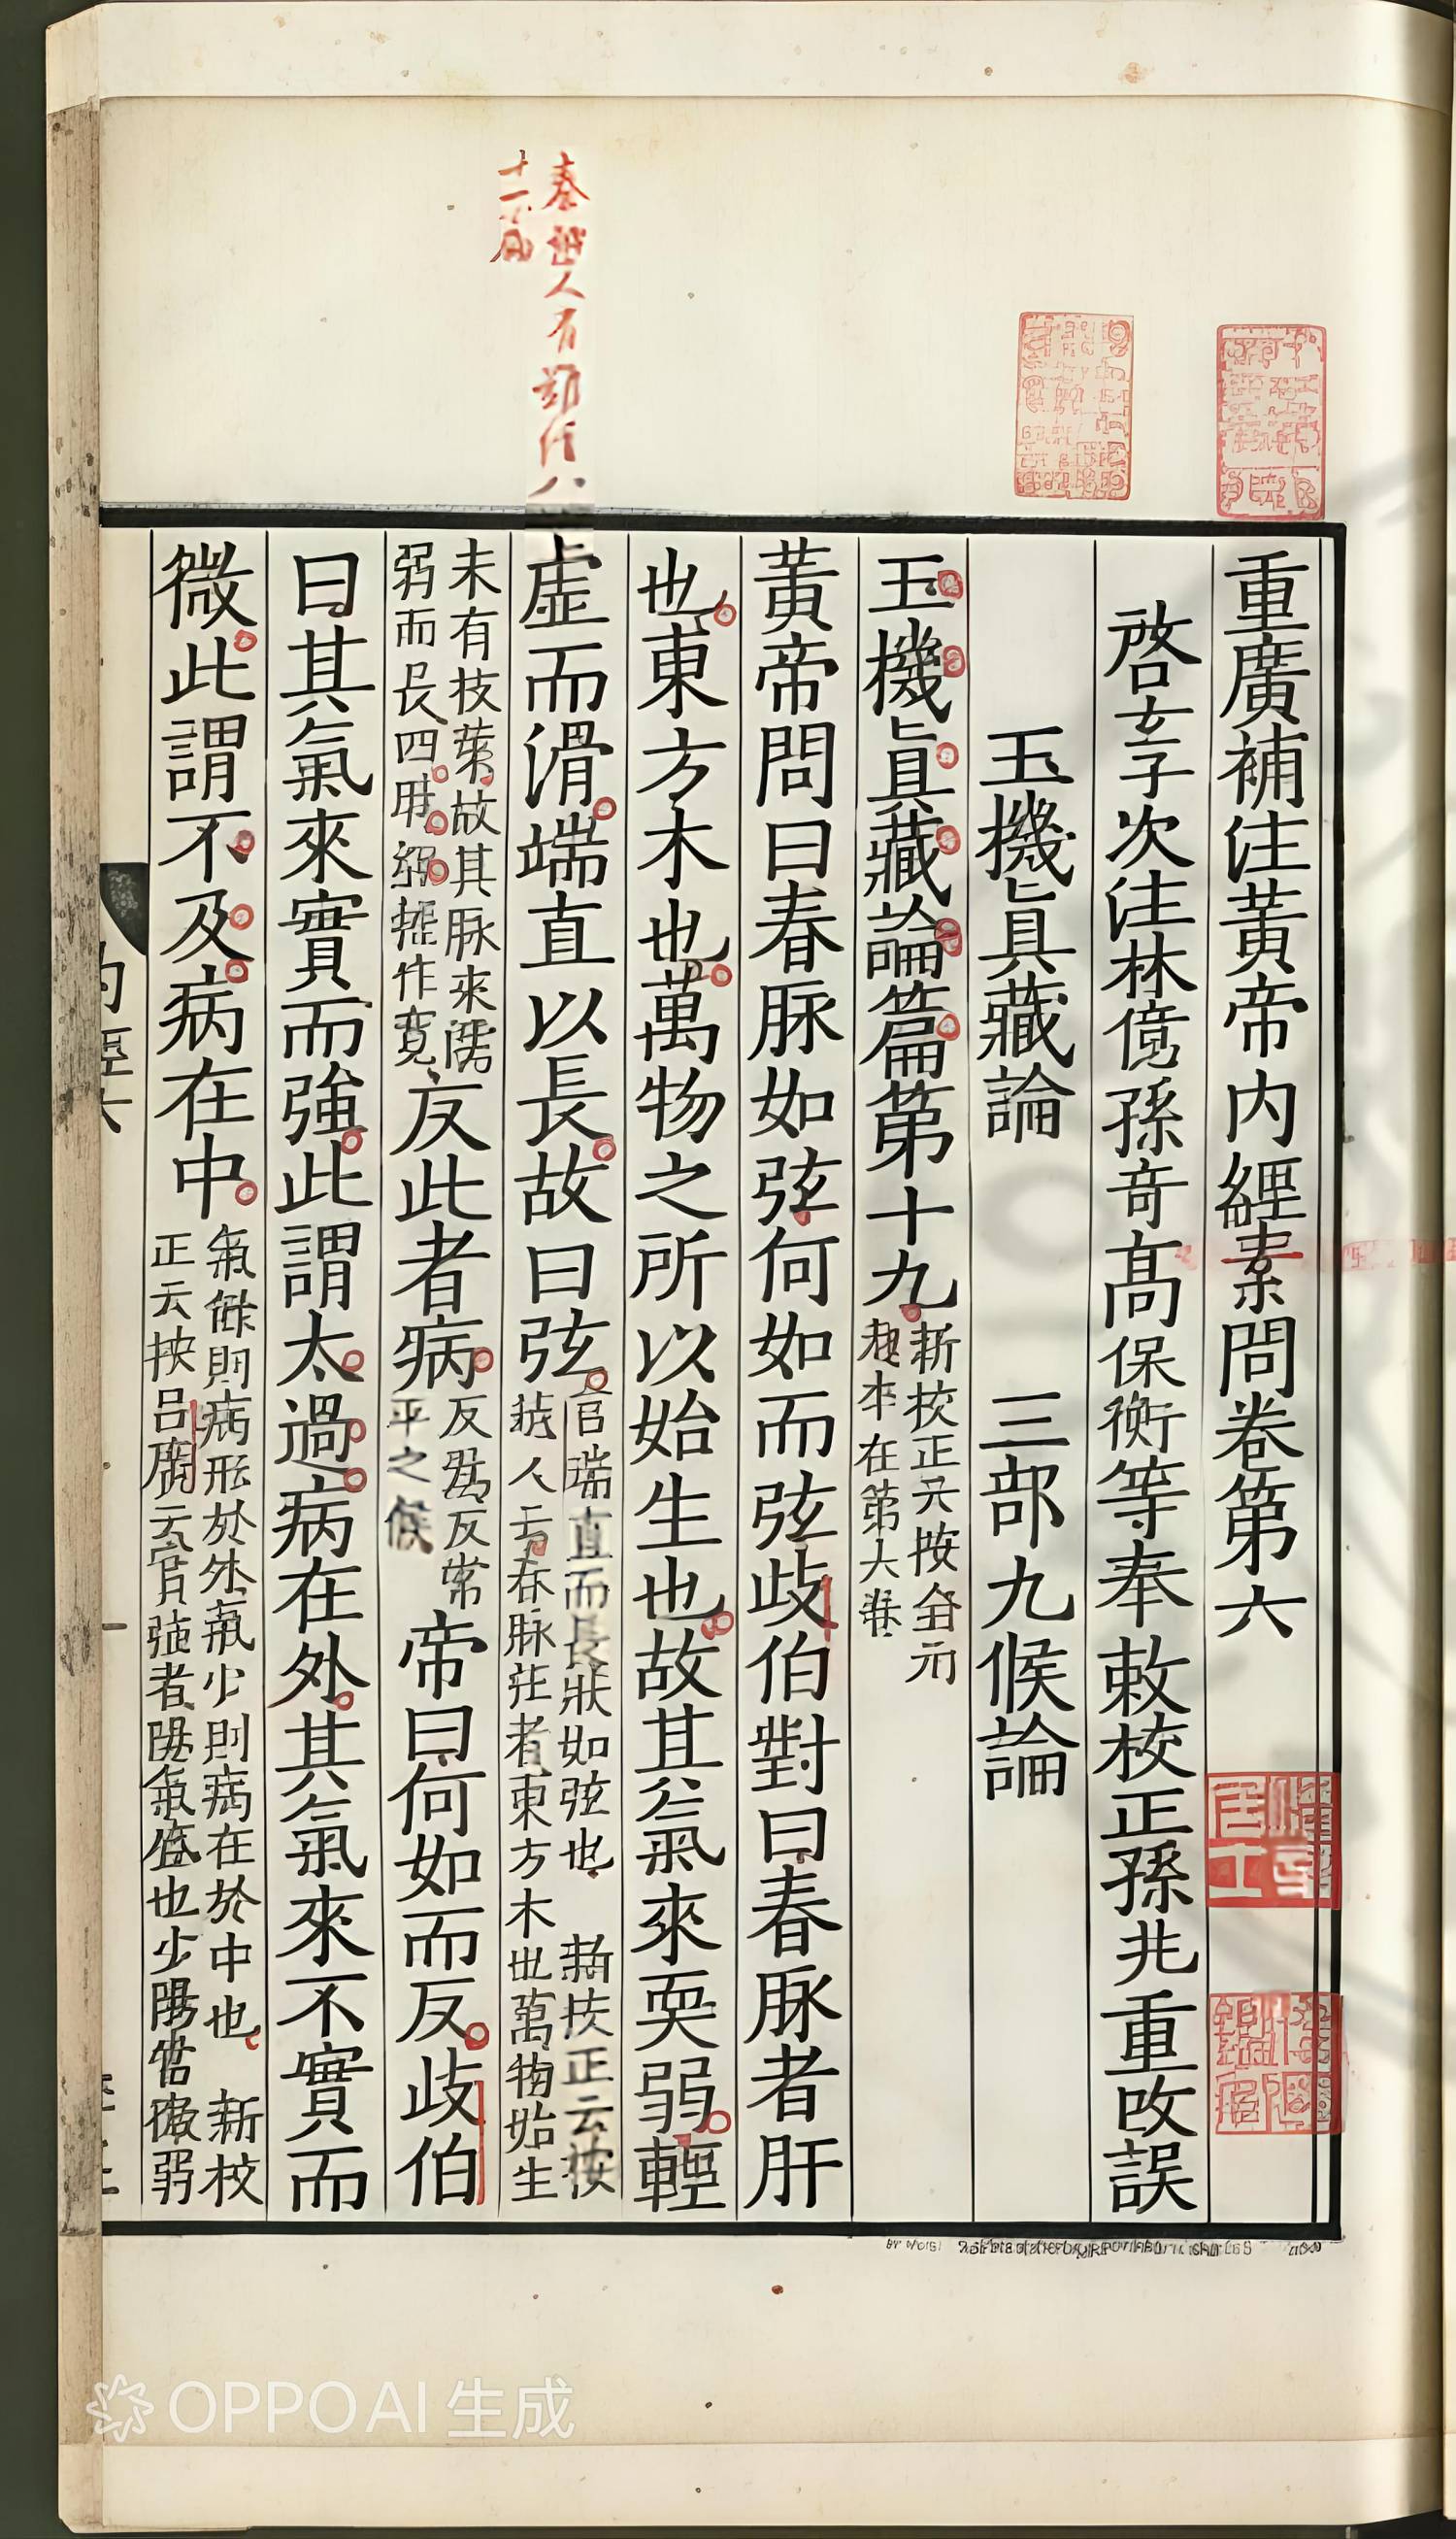 重廣補注黃帝内經素問卷第六
啓玄子次注林億孫竒高保衡等奉敕校正孫兆重改誤
玉機眞藏論 三部九候論
玉機眞藏論篇第十九
新校正云按全元
起本在第六卷
黃帝問曰春脉如弦何如而弦歧伯對曰春脉者肝
也東方木也萬物之所以始生也故其氣來耎弱輕
虛而滑端直以長故曰弦
直而長狀如弦也 新校正云按
人云春脉 者東方木也萬物始生
未有枝葉故其脉來濡
弱而長四 作寛
反此者病
反爲反常
平之候
帝曰何如而反歧伯
曰其氣來實而強此謂太過病在外其氣來不實而
微此謂不及病在中
氣餘則病形於外氣少則病在於中也 新校
正云按吕廣云 者陽氣盛也少陽 微弱
秦越人有難經八
十一篇
OPPO AI 生成